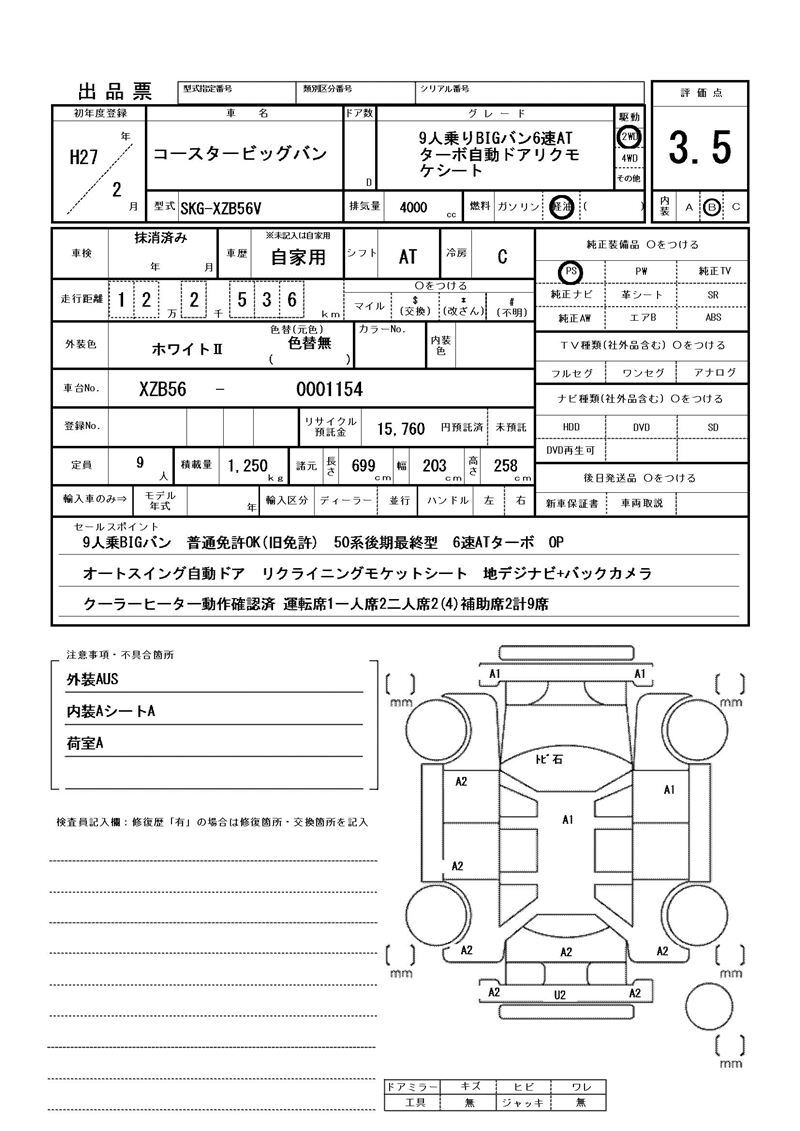 出品票
型式指定番号 類別区分番号 シリアル番号
評価点
3.5
内装 A B C
初年度登録 車名 ドア数 グレード 駆動
H27 年 2 月
コースタービッグバン
D
9人乗りBIGバン6速AT
ターボ自動ドアリクモ
ケシート
2WD
4WD
その他
型式 SKG-XZB56V 排気量 4000 cc 燃料 ガソリン 軽油 ( )
車検 抹消済み 年 月 車歴 ※未記入は自家用 自家用 シフト AT 冷房 C
走行距離 1 2 万 2 千 5 3 6 km
○をつける
マイル $(交換) *(改ざん) #(不明)
外装色 ホワイトⅡ 色替(元色) 色替無 ( ) カラーNo. 内装色
車台No. XZB56 - 0001154
登録No. リサイクル預託金 15,760 円預託済 未預託
定員 9 人 積載量 1,250 kg 諸元 長さ 699 cm 幅 203 cm 高さ 258 cm
輸入車のみ⇒ モデル年式 年 輸入区分 ディーラー 並行 ハンドル 左 右
純正装備品 ○をつける
PS PW 純正TV
純正ナビ 革シート SR
純正AW エアB ABS
TV種類(社外品含む) ○をつける
フルセグ ワンセグ アナログ
ナビ種類(社外品含む) ○をつける
HDD DVD SD
DVD再生可
後日発送品 ○をつける
新車保証書 車両取説
セールスポイント
9人乗BIGバン 普通免許OK(旧免許) 50系後期最終型 6速ATターボ OP
オートスイング自動ドア リクライニングモケットシート 地デジナビ+バックカメラ
クーラーヒーター動作確認済 運転席1一人席2二人席2(4)補助席2計9席
注意事項・不具合箇所
外装AUS
内装AシートA
荷室A
検査員記入欄:修復歴「有」の場合は修復箇所・交換箇所を記入
A1 A1
[ ] mm [ ] mm
トビ石
A2 A1
A1
A2
A2 A2 A2
[ ] mm [ ] mm
A2 U2 A2
[ ] mm
ドアミラー キズ ヒビ ワレ
工具 無 ジャッキ 無